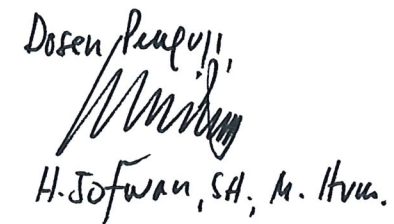 Dosen Penguji,
H. Jofwan, SH., M. Hum.